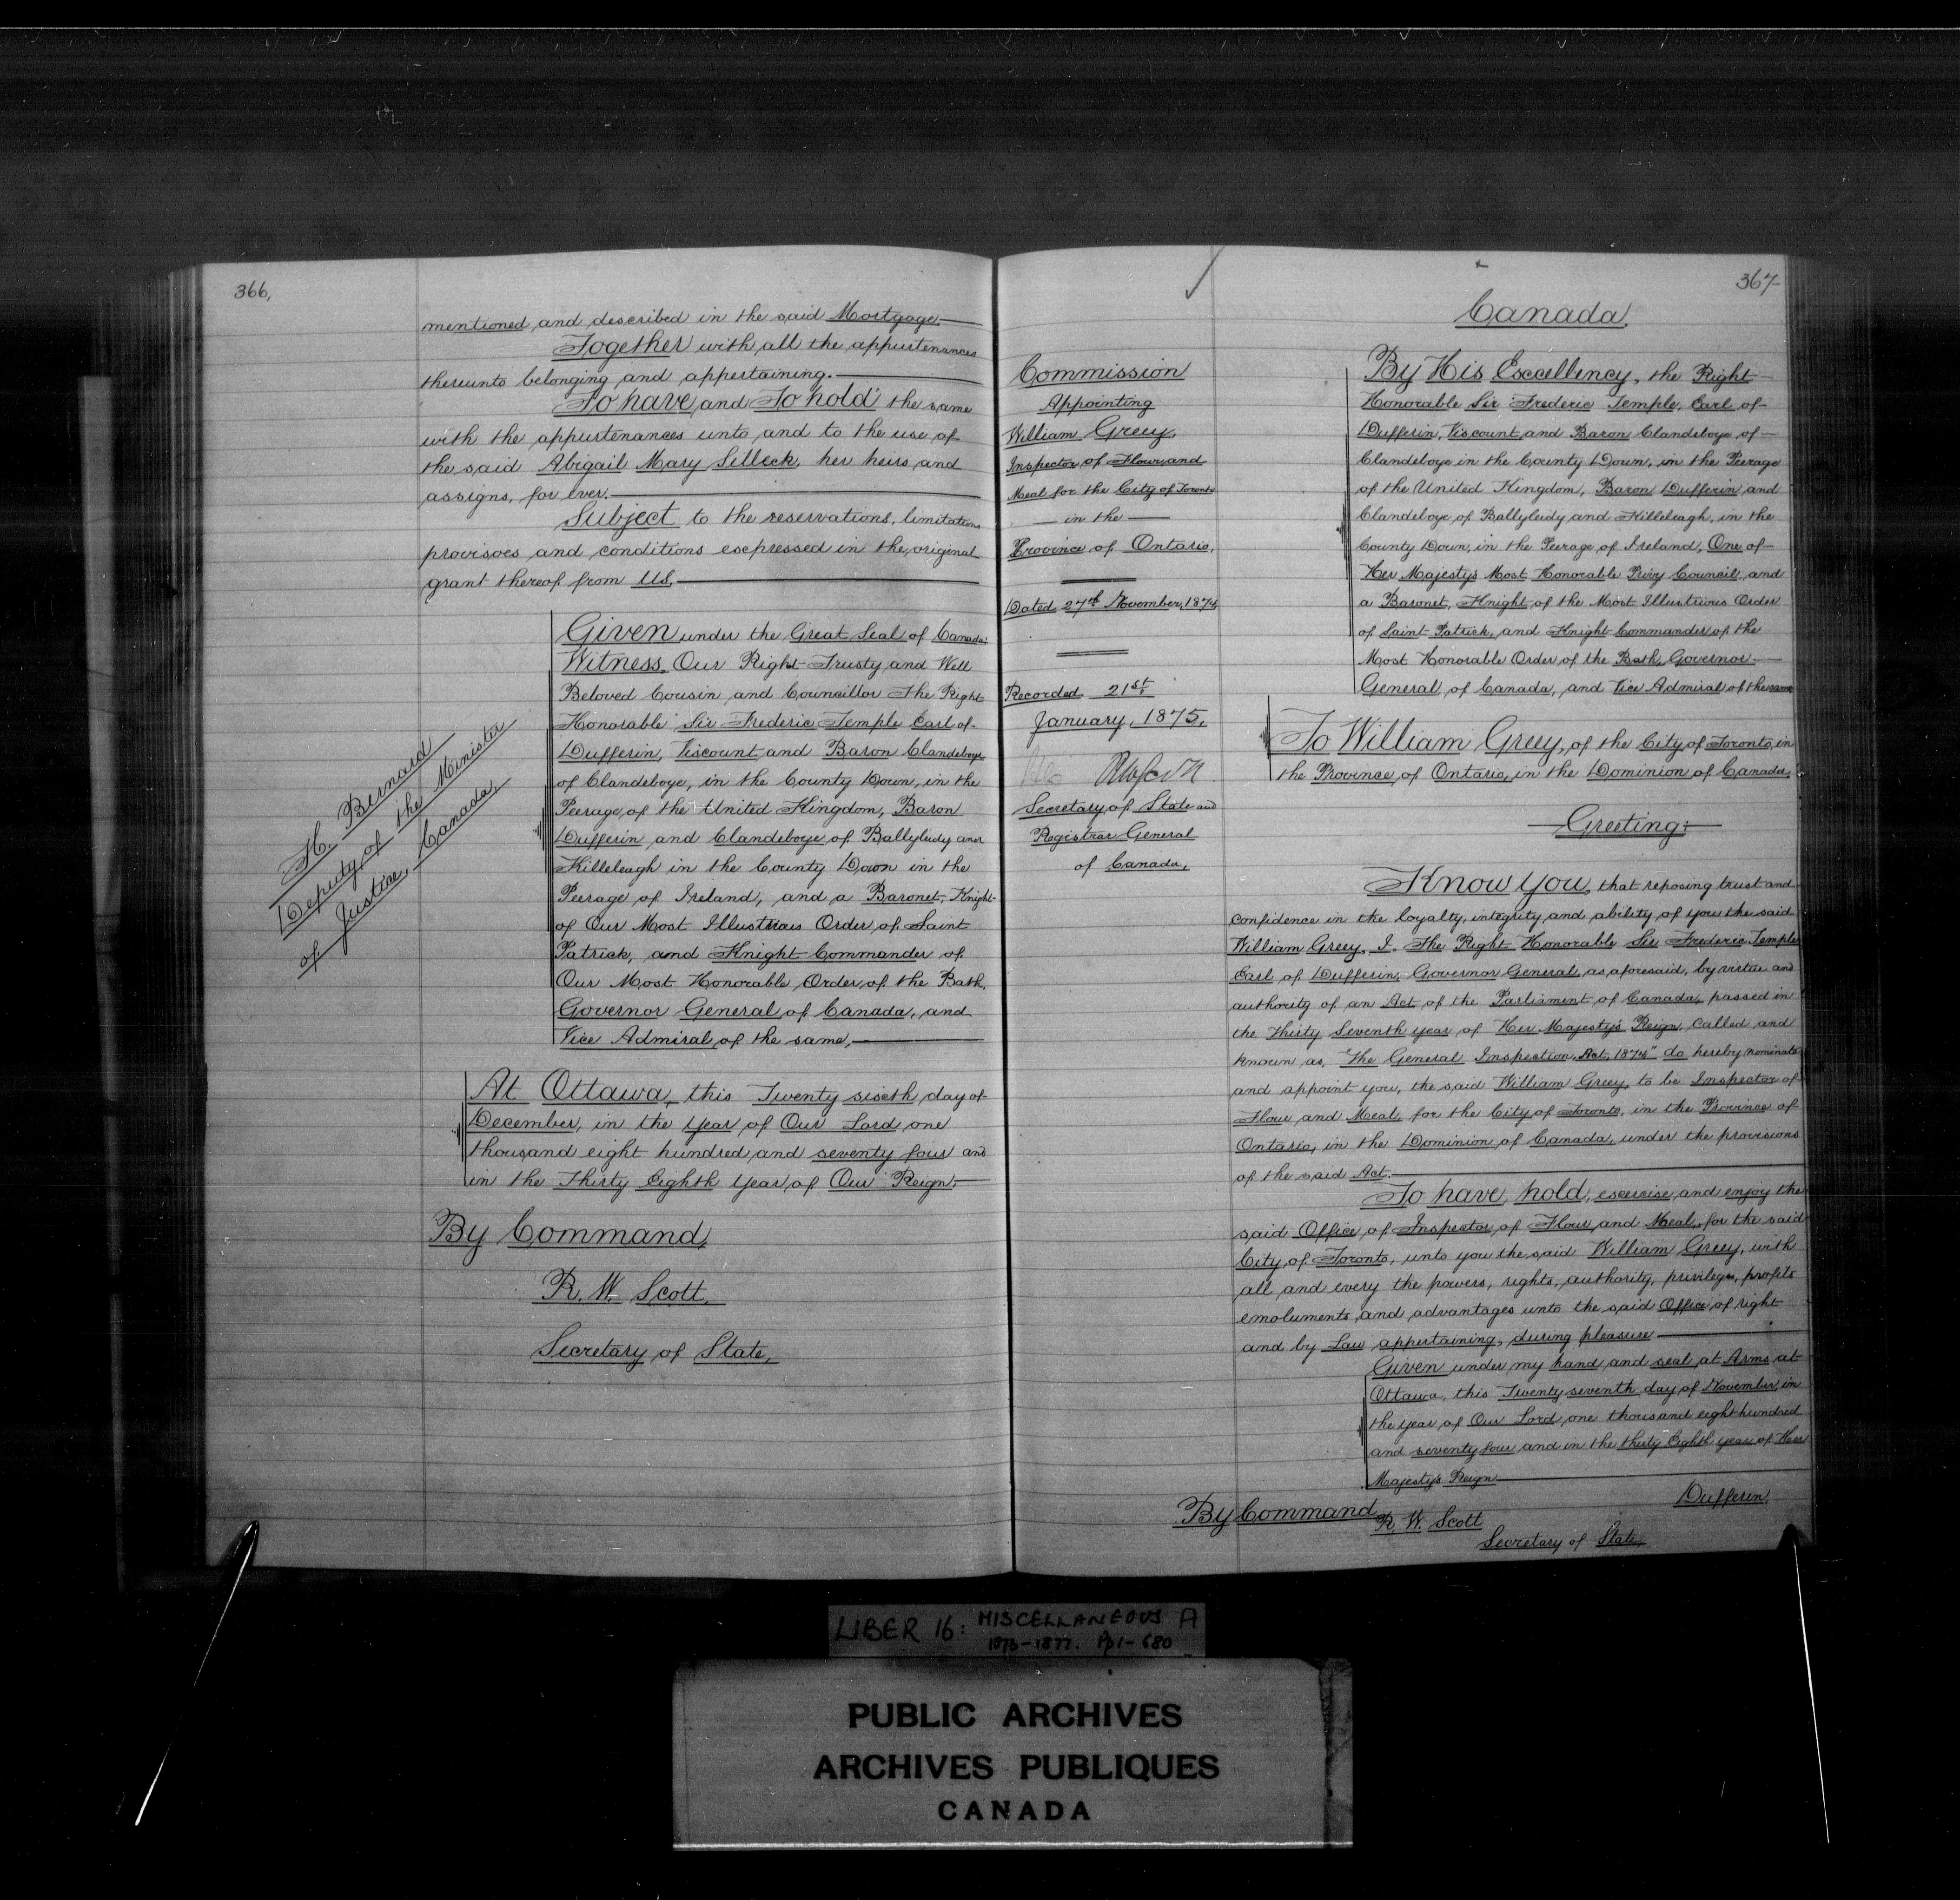 366,
mentioned and described in the said Mortgage.
Together with all the appurtenances
thereunto belonging and appertaining.
To have and To hold the same
with the appurtenances unto and to the use of
the said Abigail Mary Silleck, her heirs and
assigns, for ever.
Subject to the reservations, limitations
provisoes and conditions expressed in the original
grant thereof from Us,
Given under the Great Seal of Canada:
Witness, Our Right Trusty and Well
Beloved Cousin and Councillor The Right
Honorable Sir Frederic Temple Earl of
Dufferin, Viscount and Baron Clandeboye
of Clandeboye, in the County Down, in the
Peerage of the United Kingdom, Baron
Dufferin and Clandeboye of Ballyleidy and
Killeleagh in the County Down in the
Peerage of Ireland, and a Baronet, Knight
of Our Most Illustrious Order of Saint
Patrick, and Knight Commander of
Our Most Honorable Order of the Bath,
Governor General of Canada, and
Vice Admiral of the same,
At Ottawa, this Twenty sixth day of
December, in the year of Our Lord one
thousand eight hundred and seventy four and
in the Thirty Eighth year of Our Reign.
By Command,
R. W. Scott.
Secretary of State,
H. Bernard
Deputy of the Minister
of Justice, Canada,
367
Commission
Appointing
William Greey,
Inspector of Flour and
Meal for the City of Toronto
in the
Province of Ontario,
Dated 27th November, 1874,
Recorded 21st
January, 1875,
Secretary of State and
Registrar General
of Canada,
Canada,
By His Excellency, the Right
Honorable Sir Frederic Temple, Earl of
Dufferin, Viscount and Baron Clandeboye of
Clandeboye in the County Down, in the Peerage
of the United Kingdom, Baron Dufferin and
Clandeboye of Ballyleidy and Killeleagh, in the
County Down, in the Peerage of Ireland, One of
Her Majesty's Most Honorable Privy Council, and
a Baronet, Knight of the Most Illustrious Order
of Saint Patrick, and Knight Commander of the
Most Honorable Order of the Bath, Governor
General of Canada, and Vice Admiral of the same
To William Greey, of the City of Toronto, in
the Province of Ontario, in the Dominion of Canada,
Greeting:
Know you, that reposing trust and
confidence in the loyalty, integrity and ability of you the said
William Greey, I, The Right Honorable Sir Frederic Temple
Earl of Dufferin, Governor General, as aforesaid, by virtue and
authority of an Act of the Parliament of Canada, passed in
the Thirty Seventh year of Her Majesty's Reign, called and
known as, "The General Inspection Act, 1874" do hereby nominate
and appoint you, the said William Greey, to be Inspector of
Flour and Meal, for the City of Toronto, in the Province of
Ontario, in the Dominion of Canada, under the provisions
of the said Act.
To have, hold, exercise and enjoy the
said Office of Inspector of Flour and Meal, for the said
City of Toronto, unto you the said William Greey, with
all and every the powers, rights, authority, privileges, profits
emoluments and advantages unto the said Office of right
and by Law appertaining, during pleasure
Given under my hand and seal at Arms at
Ottawa, this Twenty seventh day of November, in
the year of Our Lord, one thousand eight hundred
and seventy four and in the thirty Eighth year of Her
Majesty's Reign
Dufferin,
By Command,
R. W. Scott
Secretary of State,
LIBER 16: MISCELLANEOUS A
1873-1877. Pp1-680
PUBLIC ARCHIVES
ARCHIVES PUBLIQUES
CANADA